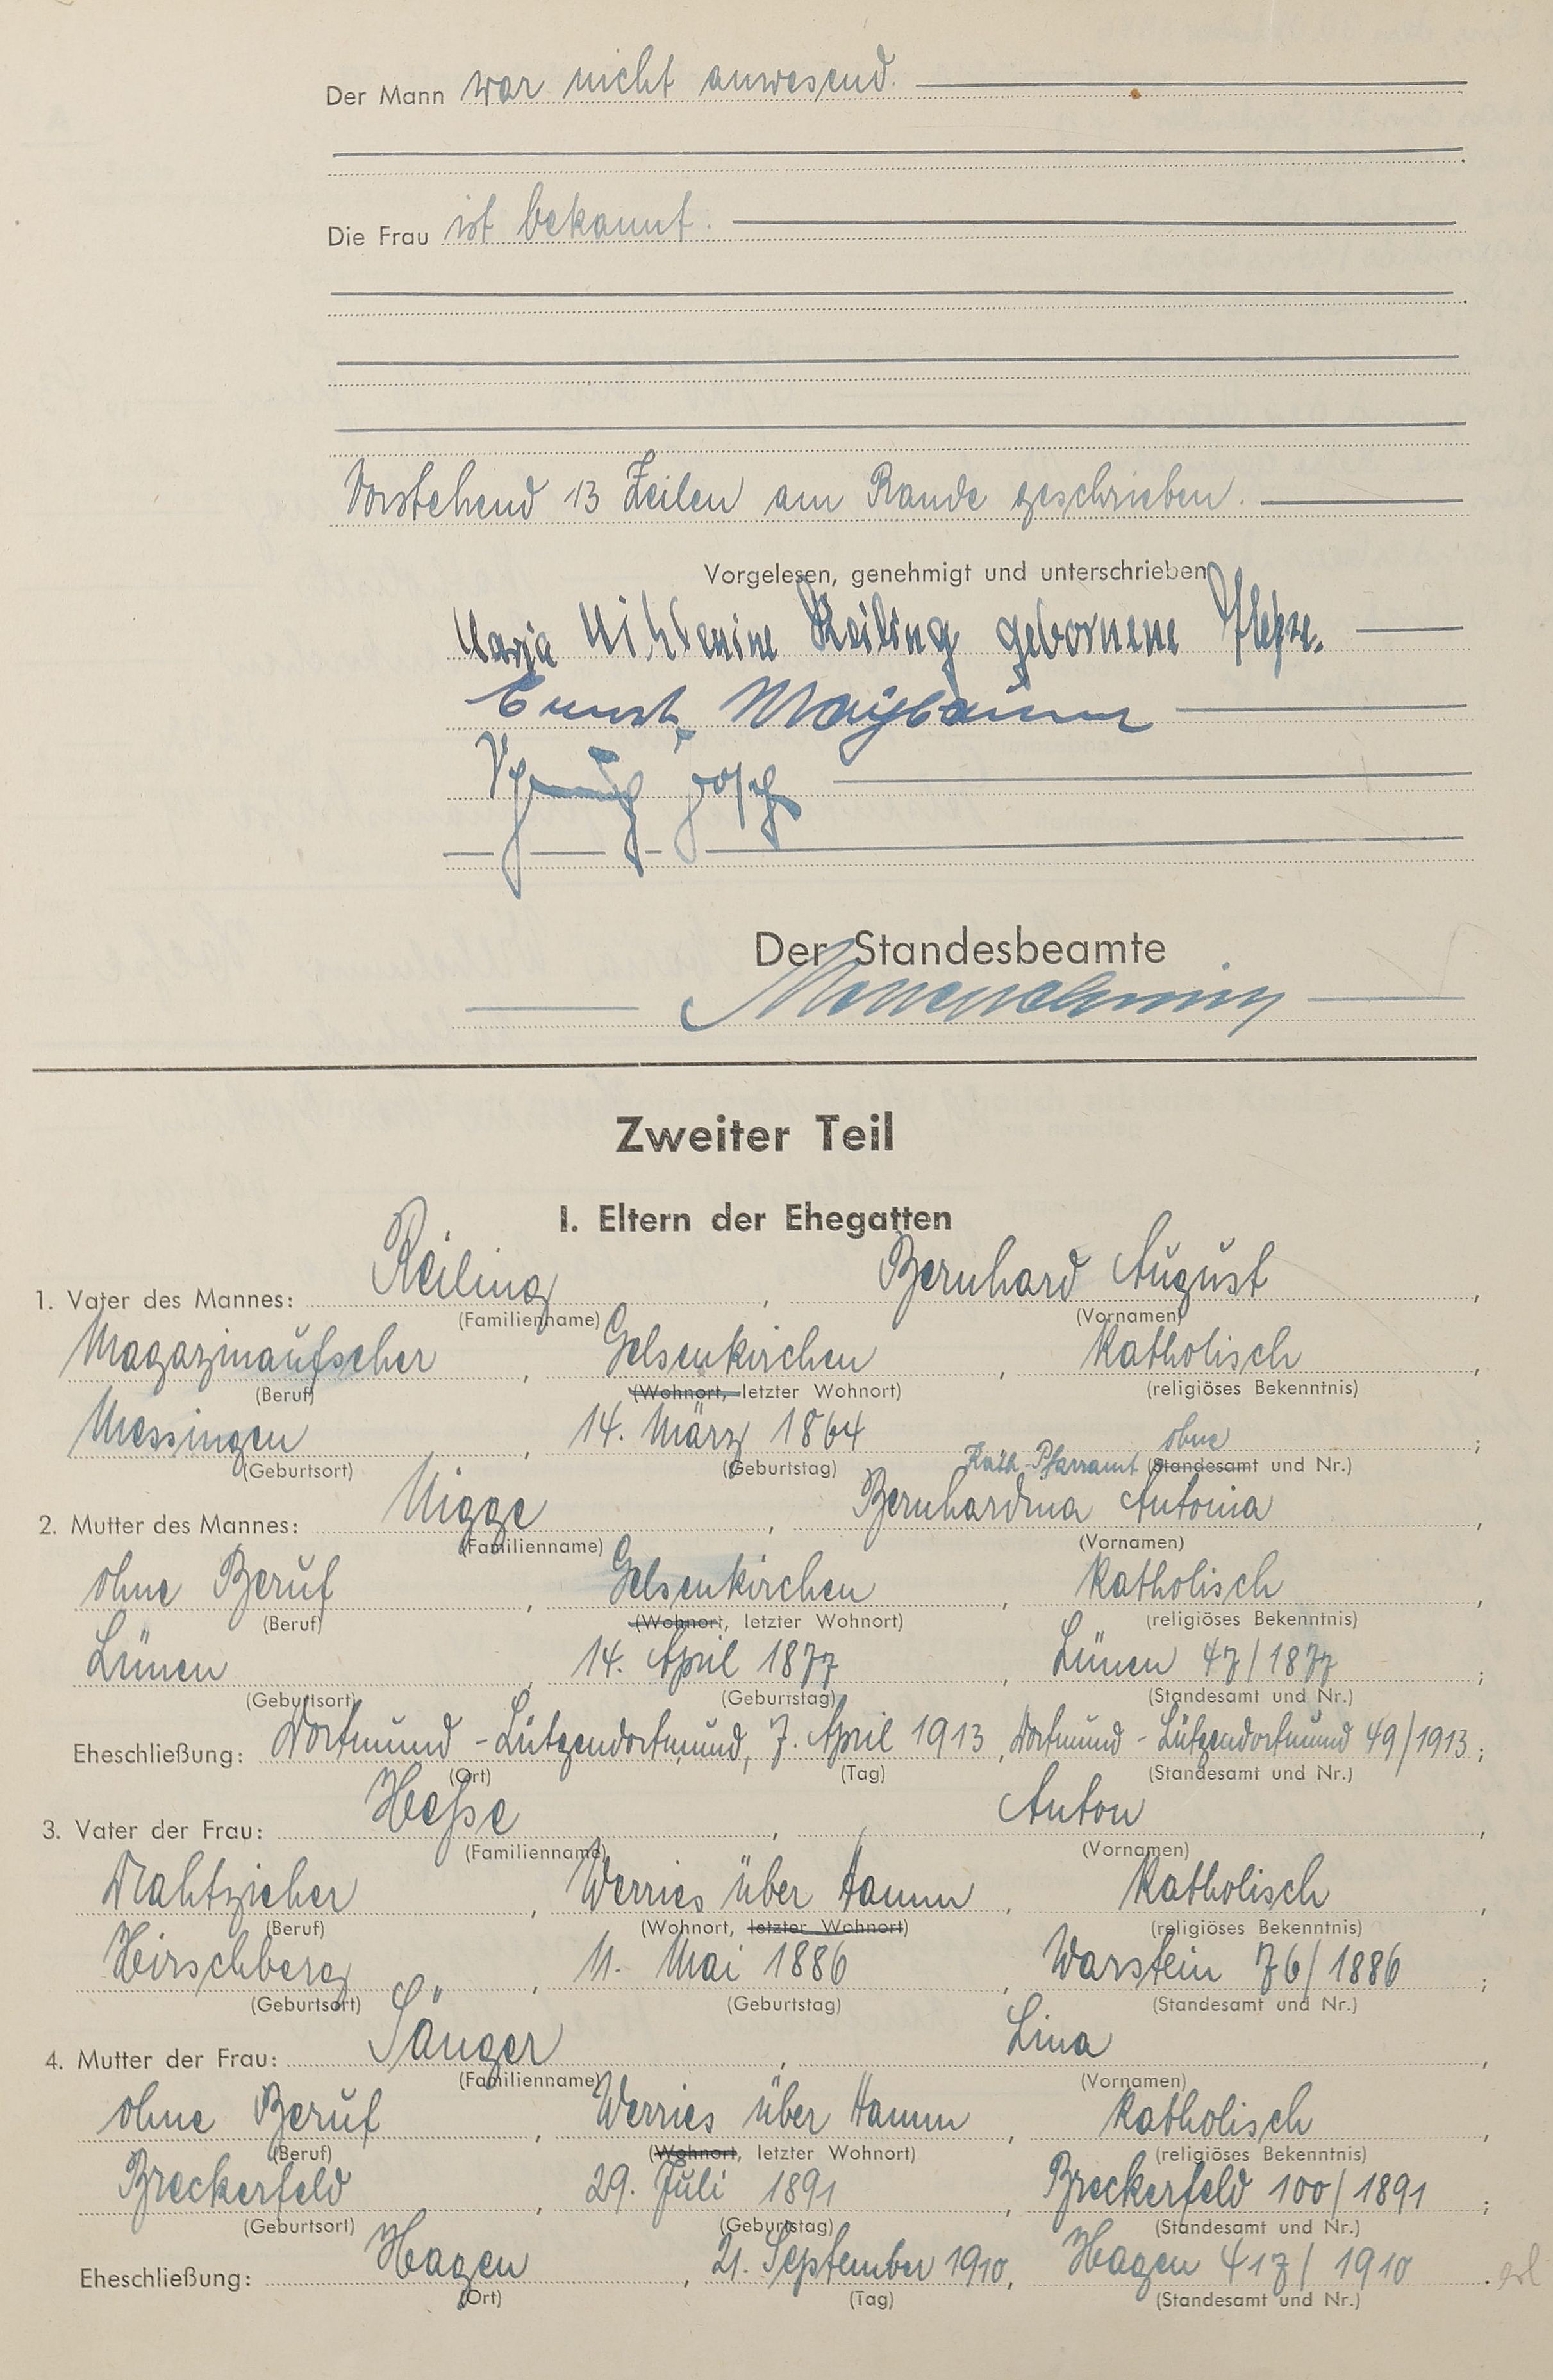 Der Mann war nicht anwesend.
Die Frau ist bekannt.
Vorstehend 13 Zeilen am Rande geschrieben.
Vorgelesen, genehmigt und unterschrieben
Maria Wilhelmine Reiling geborene Heße.
Ernst Maybaum
Der Standesbeamte
Zweiter Teil
I. Eltern der Ehegatten
1. Vater des Mannes: Reiling, Bernhard August,
(Familienname) (Vornamen)
Magazinaufseher, Gelsenkirchen, katholisch,
(Beruf) (Wohnort, letzter Wohnort) (religiöses Bekenntnis)
Messingen, 14. März 1864 ohne;
(Geburtsort) (Geburtstag) Kath. Pfarramt (Standesamt und Nr.)
2. Mutter des Mannes: Nigge, Bernhardina Antonia,
(Familienname) (Vornamen)
ohne Beruf, Gelsenkirchen, katholisch,
(Beruf) (Wohnort, letzter Wohnort) (religiöses Bekenntnis)
Lünen, 14. April 1877, Lünen 47/1877;
(Geburtsort) (Geburtstag) (Standesamt und Nr.)
Eheschließung: Dortmund-Lütgendortmund, 7. April 1913, Dortmund-Lütgendortmund 49/1913;
(Ort) (Tag) (Standesamt und Nr.)
3. Vater der Frau: Heße, Anton,
(Familienname) (Vornamen)
Drahtzieher, Werries über Hamm, katholisch,
(Beruf) (Wohnort, letzter Wohnort) (religiöses Bekenntnis)
Hirschberg, 11. Mai 1886, Warstein 76/1886;
(Geburtsort) (Geburtstag) (Standesamt und Nr.)
4. Mutter der Frau: Sänger, Lina,
(Familienname) (Vornamen)
ohne Beruf, Werries über Hamm, katholisch,
(Beruf) (Wohnort, letzter Wohnort) (religiöses Bekenntnis)
Breckerfeld, 29. Juli 1891, Breckerfeld 100/1891;
(Geburtsort) (Geburtstag) (Standesamt und Nr.)
Eheschließung: Hagen, 21. September 1910, Hagen 417/1910.
(Ort) (Tag) (Standesamt und Nr.)